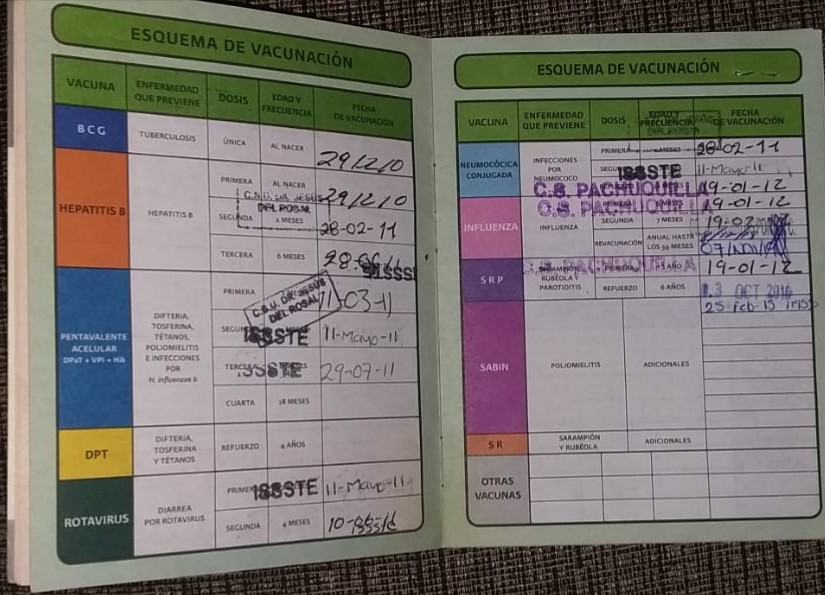 ESQUEMA DE VACUNACIÓN
VACUNA ENFERMEDAD QUE PREVIENE DOSIS EDAD Y FRECUENCIA FECHA DE VACUNACIÓN
BCG TUBERCULOSIS ÚNICA AL NACER 29/12/10
HEPATITIS B HEPATITIS B
PRIMERA AL NACER 29/12/10
C.S.U. DR. JESÚS
DEL ROSAL
SEGUNDA 2 MESES 28-02-11
TERCERA 6 MESES
PENTAVALENTE
ACELULAR
DPaT + VPI + Hib
DIFTERIA,
TOSFERINA,
TÉTANOS,
POLIOMIELITIS
E INFECCIONES
POR
H. influenzae b
PRIMERA 11-03-11
C.S.U. DR. JESÚS
DEL ROSAL
ISSSTE 11-Mayo-11
ISSSTE 29-07-11
CUARTA 18 MESES
DPT
DIFTERIA,
TOSFERINA
Y TÉTANOS
REFUERZO 4 AÑOS
ROTAVIRUS
DIARREA
POR ROTAVIRUS
ISSSTE 11-Mayo-11
SEGUNDA 4 MESES
ESQUEMA DE VACUNACIÓN
VACUNA ENFERMEDAD QUE PREVIENE DOSIS EDAD Y FRECUENCIA FECHA DE VACUNACIÓN
NEUMOCÓCICA
CONJUGADA
INFECCIONES
POR
NEUMOCOCO
PRIMERA MESES 28-02-11
ISSSTE 11-Mayo-11
C.S. PACHUQUILLA 19-01-12
INFLUENZA INFLUENZA
C.S. PACHUQUILLA 19-01-12
SEGUNDA 7 MESES
REVACUNACIÓN ANUAL HASTA
LOS 59 MESES
SRP
SARAMPIÓN
RUBÉOLA
PAROTIDITIS
C.S. PACHUQUILLA
PRIMERA 1 AÑO 19-01-12
REFUERZO 6 AÑOS
SABIN POLIOMIELITIS ADICIONALES
25-Feb-13 IMSS
SR
SARAMPIÓN
Y RUBÉOLA
ADICIONALES
OTRAS
VACUNAS